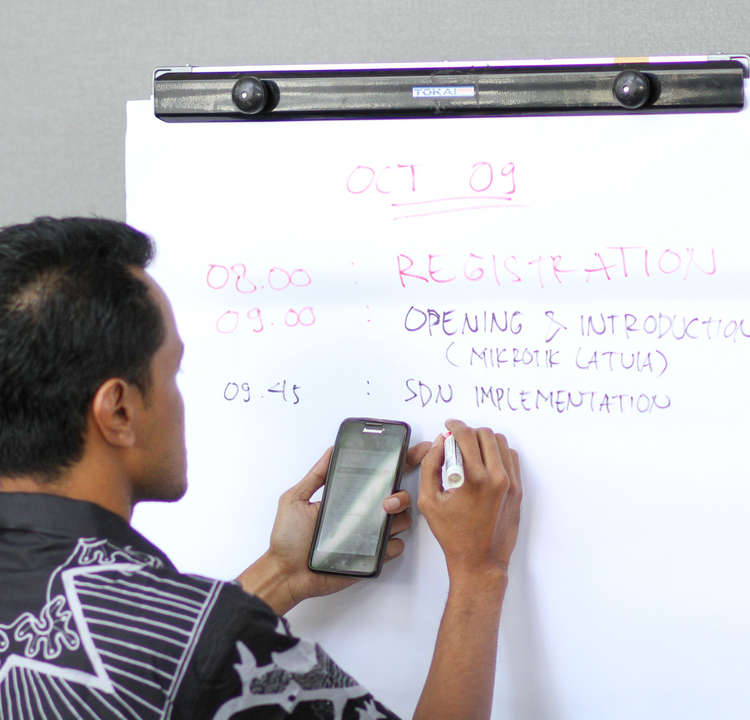 TOKAI
OCT 09
08.00 : REGISTRATION
09.00 : OPENING & INTRODUCTION
(MIKROTIK LATVIA)
09.45 : SDN IMPLEMENTATION
lenovo